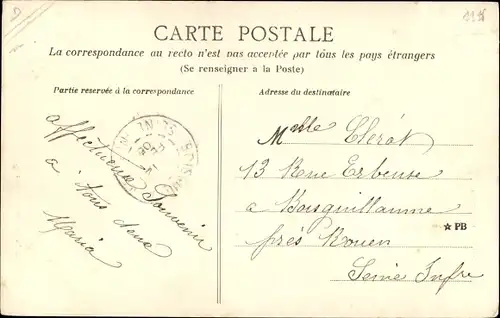 CARTE POSTALE
La correspondance au recto n'est pas acceptée par tous les pays étrangers
(Se renseigner à la Poste)
Partie reservée à la correspondance
Adresse du destinataire
affectueux Souvenir
à tous deux
Maria
Mlle Clérót
13 Rue Erbeuse
a Boisguillaume
près Rouen
Seine Infre
★ PB